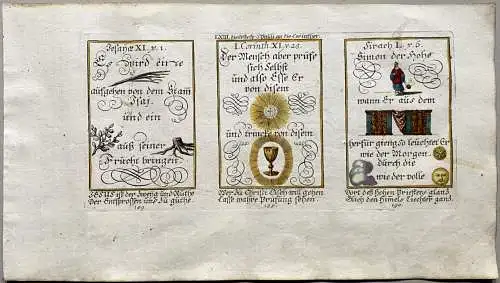 Jesajæ XI. v. 1.
Es wird eine
aufgehen von dem Stam
Isai,
und ein
auß seiner
Frucht bringen.
JESUS ist der Zweig und Ruthe
Der Entsprossen uns zu guthe.
189.
I. Corinth. XI. v. 28.
Der Mensch aber prüfe
sich Selbst
und also Esse Er
von disem
und trincke von disem
Wer zu Christi Tisch will gehen
Lasse wahre Prüfung sehen.
Sirach L. v. 6.
Simon der Hohe
wann Er aus dem
herfür gieng so leuchtet Er
wie der Morgen
durch die
wie der volle
Dort des Hohen Priesters glantz
Gleich den Himels Liechter gantz.
190.